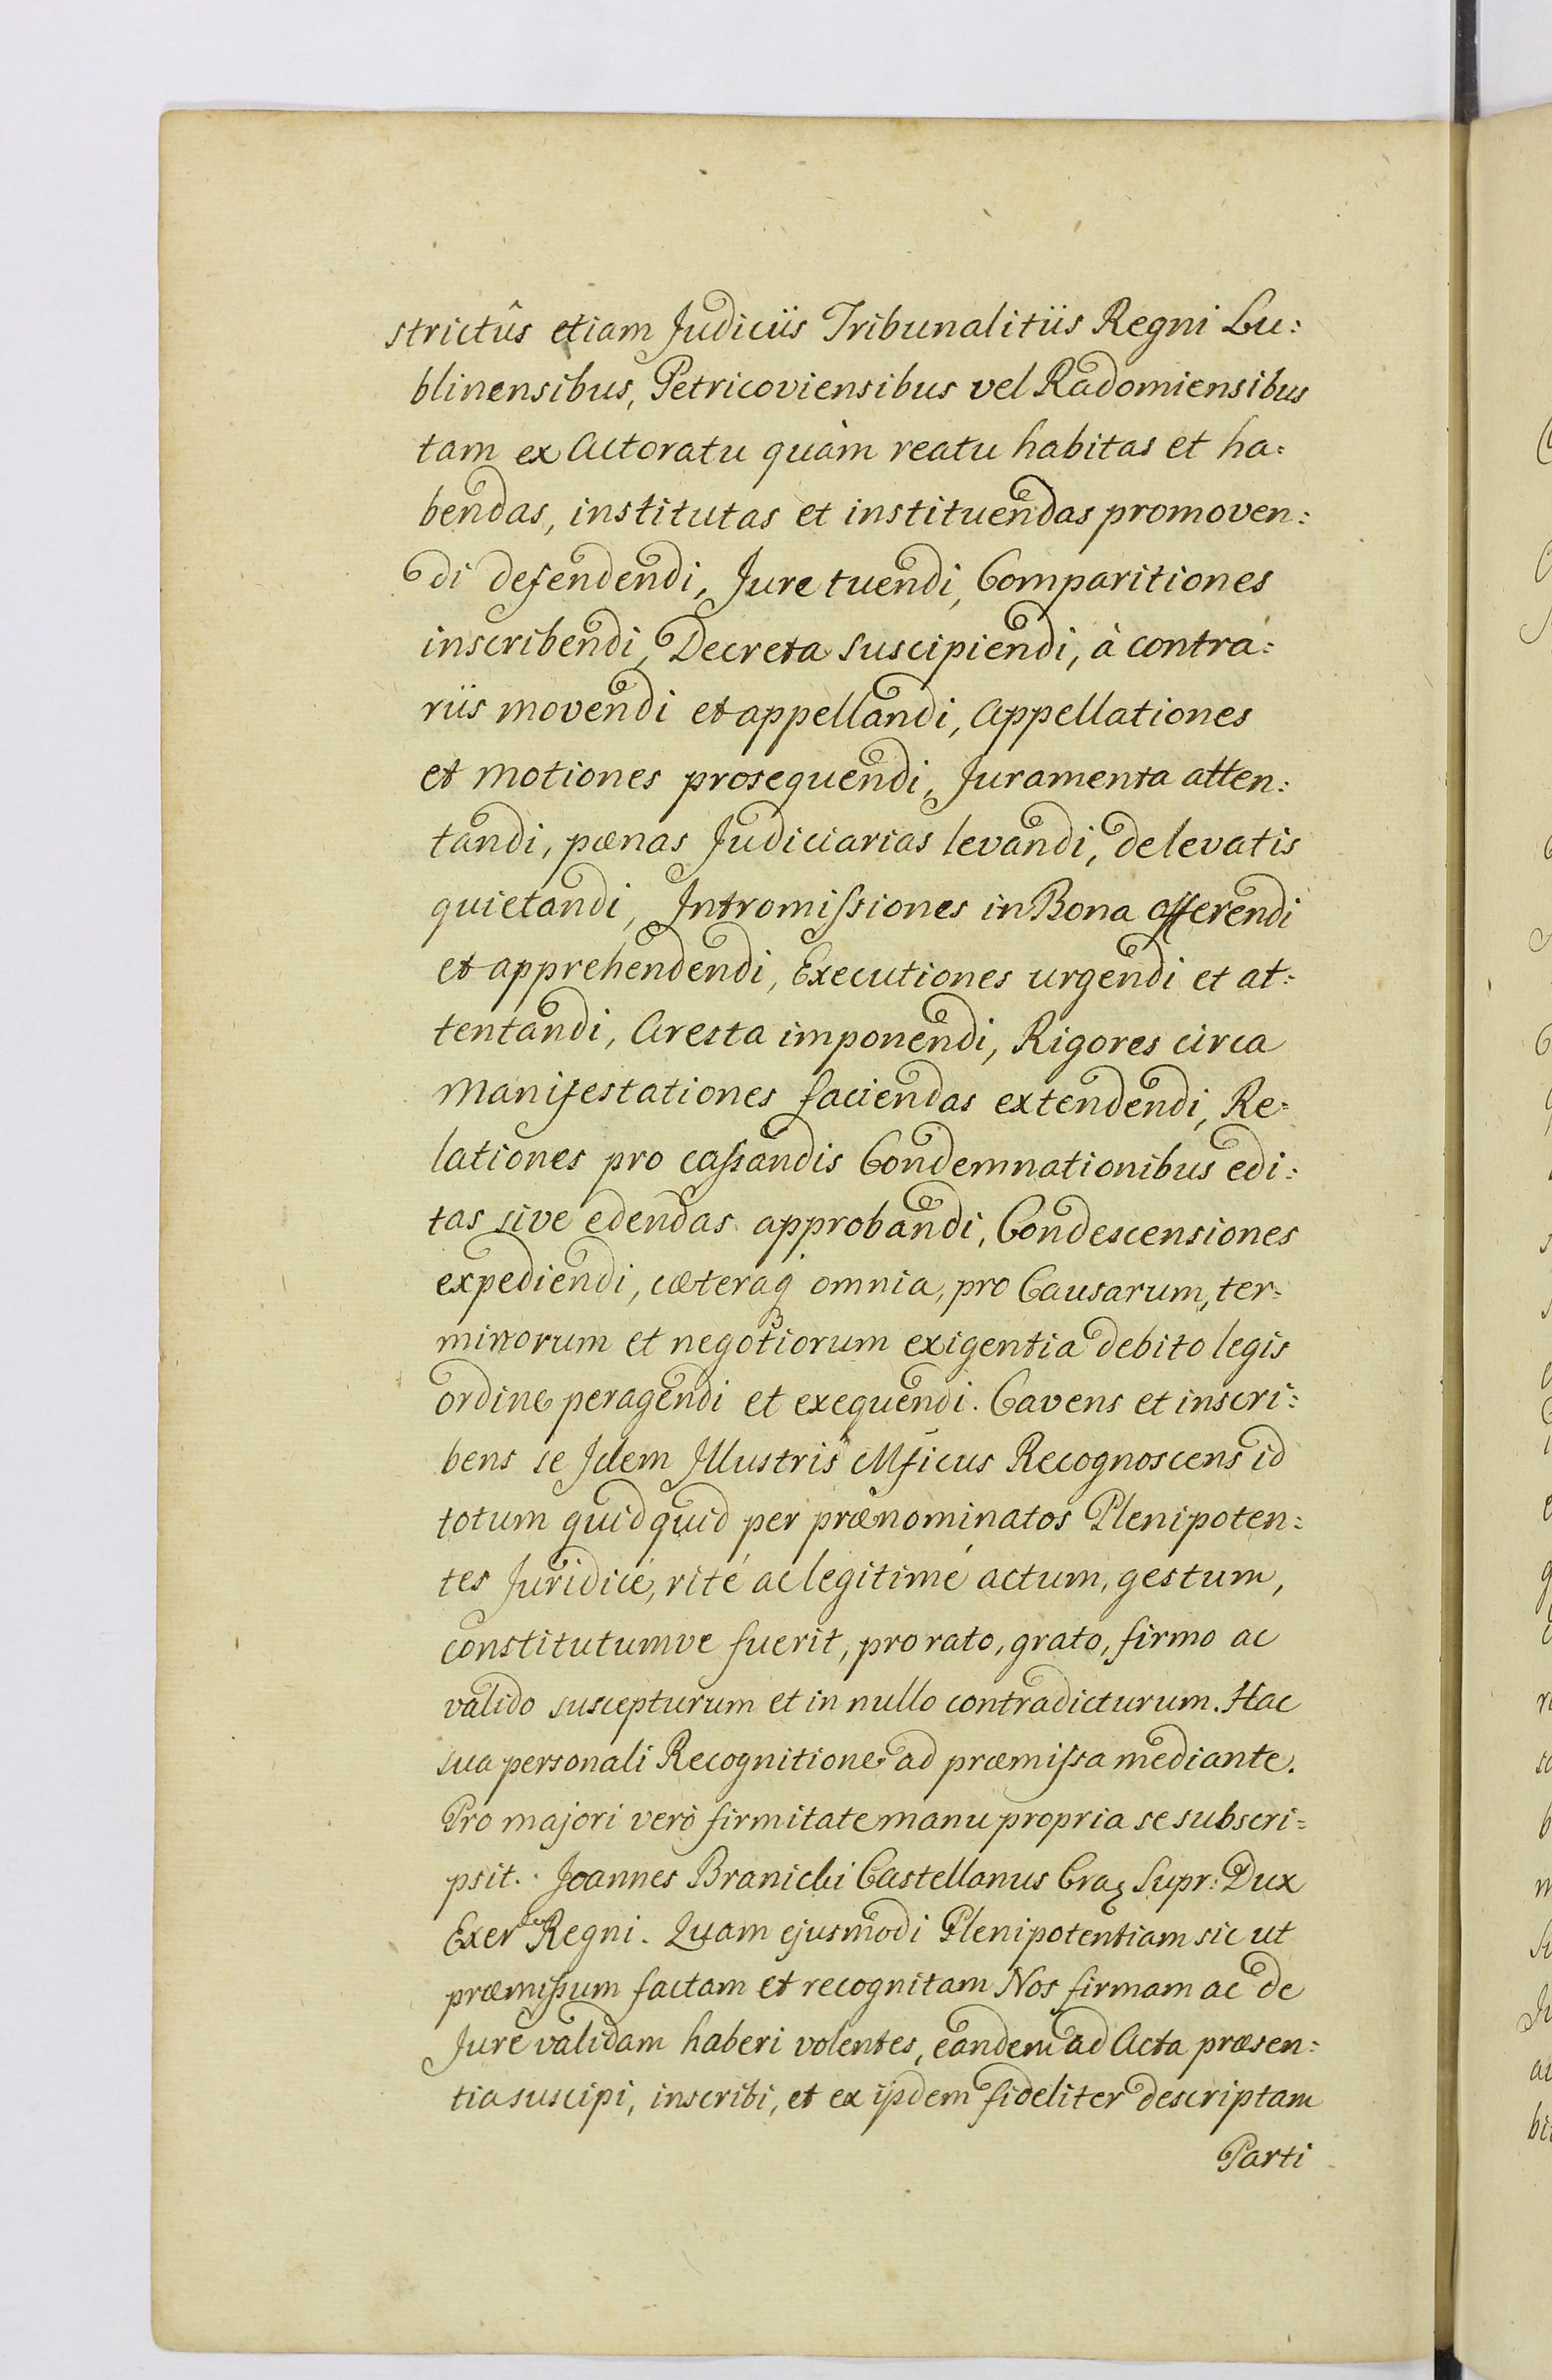 strictûs etiam Judiciis Tribunalitiis Regni Lu:
blinensibus, Petricoviensibus vel Radomiensibus
tam ex Actoratu quàm reatu habitas et ha:
bendas, institutas et instituendas promoven:
di defendendi, Jure tuendi, Comparitiones
inscribendi, Decreta suscipiendi, à contra:
riis movendi et appellandi, Appellationes
et motiones prosequendi, Juramenta atten:
tandi, pœnas Judiciarias levandi, de levatis
quietandi, Intromiſsiones in Bona offerendi
et apprehendendi, Executiones urgendi et at:
tentandi, Aresta imponendi, Rigores circa
Manifestationes faciendas extendendi, Re:
lationes pro caſsandis Condemnationibus edi:
tas sive edendas approbandi, Condescensiones
expediendi, cæteraq omnia, pro Causarum, ter:
minorum et negotiorum exigentia debito legis
ordine peragendi et exequendi. Cavens et inscri:
bens se Idem Illustris Mficus Recognoscens id
totum quidquid per prænominatos Plenipoten:
tes Juridicé, rité ac legitimé actum, gestum,
constitutumve fuerit, pro rato, grato, firmo ac
valido suscepturum et in nullo contradicturum. Hac
sua personali Recognitione ad præmiſsa mediante.
Pro majori verò firmitate manu propria se subscri:
psit. Joannes Branicki Castellanus Crac Supr: Dux
Exer Regni. Quam ejusmodi Plenipotentiam sic ut
præmiſsum factam et recognitam Nos firmam ac de
Jure validam haberi volentes, eandem ad Acta præsen:
tia suscipi, inscribi, et ex ijsdem fideliter descriptam
Parti